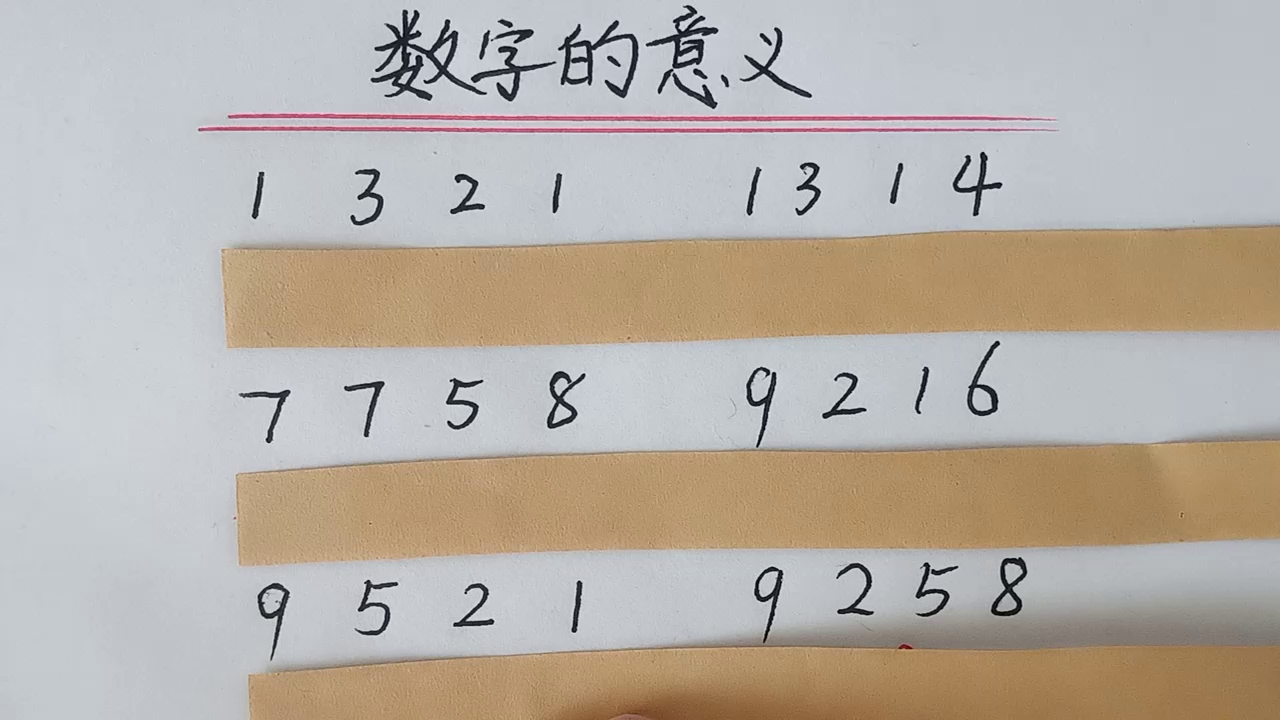 数字的意义
1 3 2 1 1 3 1 4
7 7 5 8 9 2 1 6
9 5 2 1 9 2 5 8